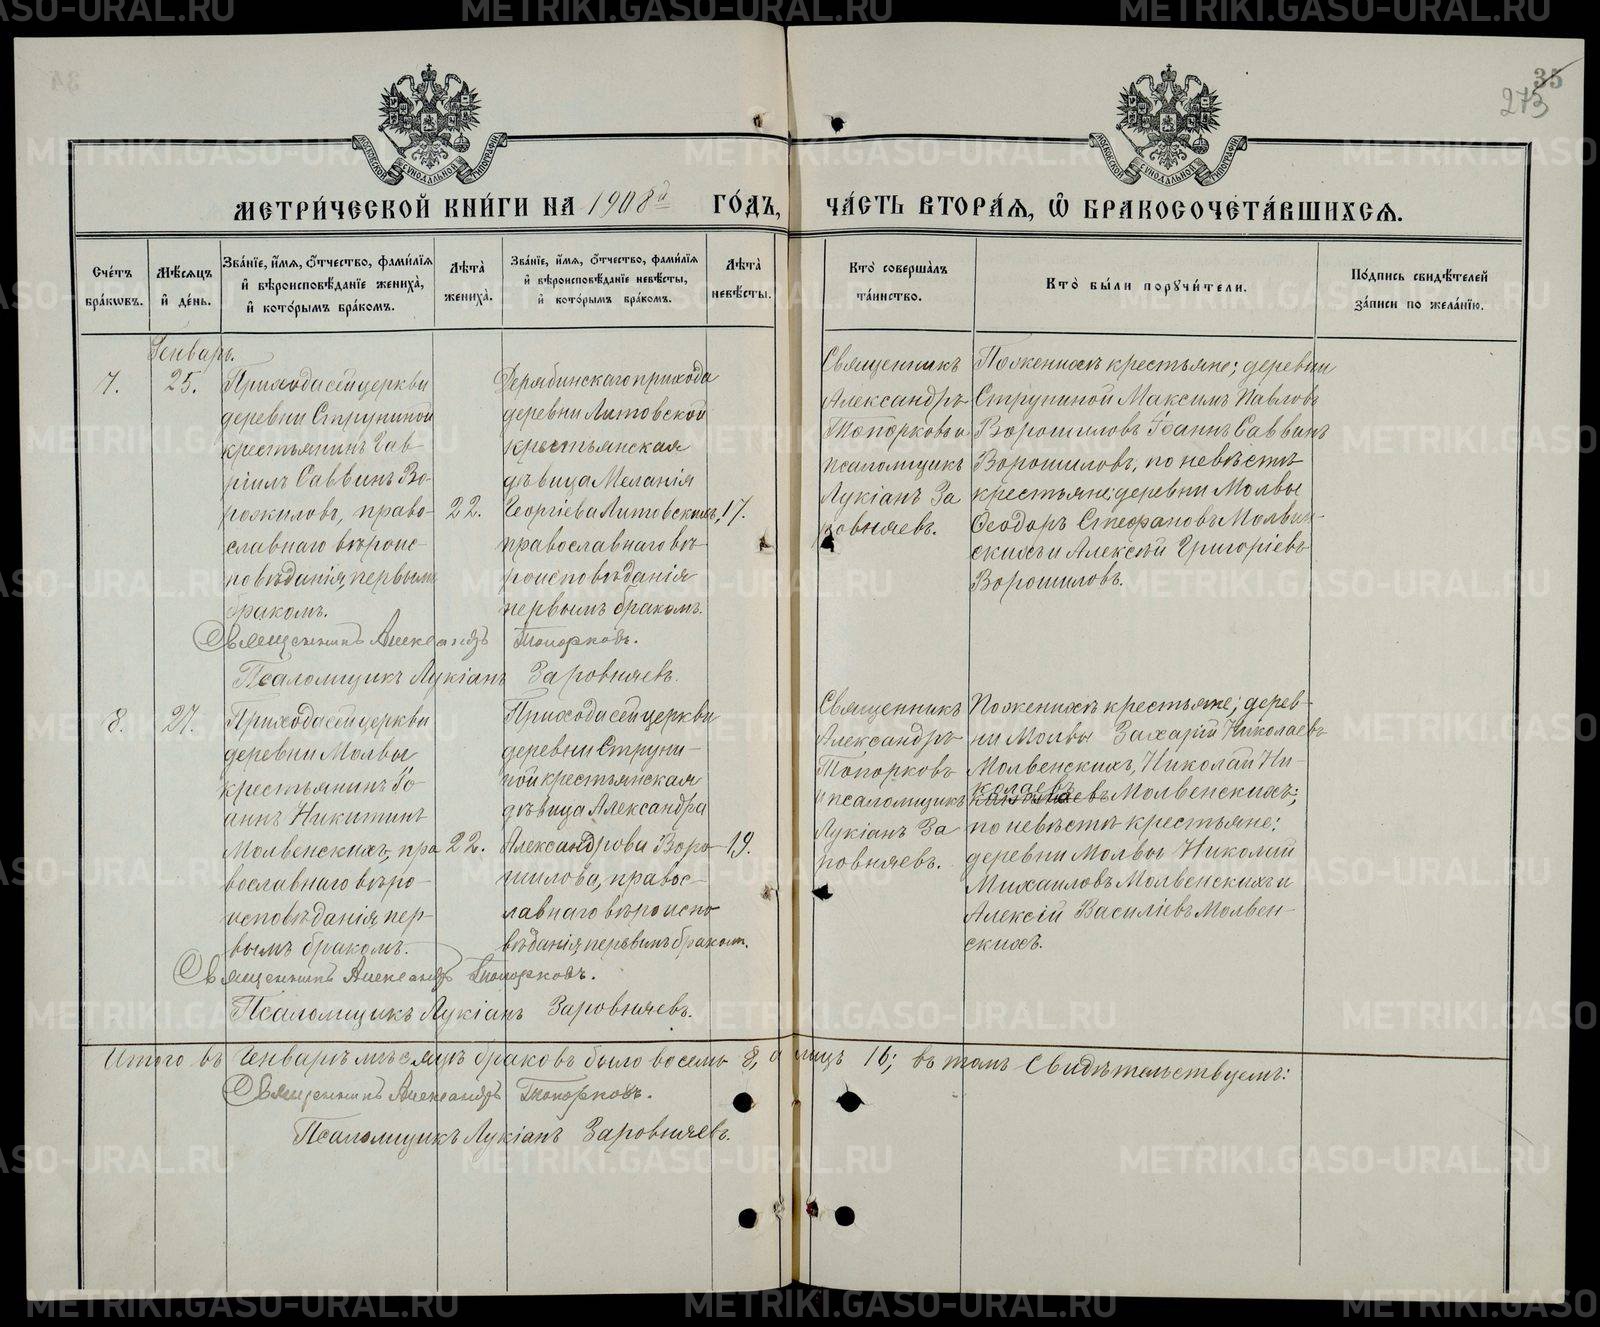 35
273
МОСКОВСКОЙ СѴНОДАЛЬНОЙ ТИПОГРАФІИ
МОСКОВСКОЙ СѴНОДАЛЬНОЙ ТИПОГРАФІИ
МЕТРИ́ЧЕСКОЙ КНИ́ГИ НА 1908й ГО́ДЪ, ЧА́СТЬ ВТОРА́Я, Ѽ БРАКОСОЧЕТА́ВШИХСЯ.
Сче́тъ бра́кѡвъ.
Мѣ́сяцъ и҆ де́нь.
Зва́нїе, и҆́мя, ѻ҆́тчество, фами́лїя и҆ вѣроисповѣ́данїе жениха̀, и҆ кото́рымъ бра́комъ.
Лѣ́та̀ жениха̀.
Зва́нїе, и҆́мя, ѻ҆́тчество, фами́лїя и҆ вѣроисповѣ́данїе невѣ́сты, и҆ кото́рымъ бра́комъ.
Лѣ́та̀ невѣ́сты.
Кто̀ соверша́лъ та́инство.
Кто̀ бы́ли порꙋчи́тели.
По́дпись свидѣ́телей за́писи по жела́нїю.
Генварь.
7.
25.
Прихода сей церкви
деревни Струниной
крестьянинъ Гав-
ріилъ Саввинъ Во-
рожиловъ, право-
славнаго вѣроис-
повѣданія, первымъ
бракомъ.
22.
Дерябинскаго прихода
деревни Литовской
крестьянская
дѣвица Меланія
Георгіева Литовскихъ,
православнаго вѣ-
роисповѣданія
первымъ бракомъ.
17.
Священникъ
Александръ
Топорковъ и
псаломщикъ
Лукіанъ За
ровняевъ.
По женихѣ крестьяне; деревни
Струниной Максимъ Павловъ
Ворошиловъ Іоаннъ Саввинъ
Ворошиловъ, по невѣстѣ
крестьяне; деревни Молвы
Ѳеодоръ Стефановъ Молвин-
скихъ и Алексѣй Григоріевъ
Ворошиловъ.
Священникъ Александръ Топорковъ.
Псаломщикъ Лукіанъ Заровняевъ.
8.
27.
Прихода сей церкви
деревни Молвы
крестьянинъ Іо-
аннъ Никитинъ
Молвенскихъ, пра
вославнаго вѣро-
исповѣданія, пер-
вымъ бракомъ.
22.
Прихода сей церкви
деревни Струни-
ной крестьянская
дѣвица Александра
Александрова Воро-
шилова, правос-
лавнаго вѣроиспо
вѣданія, первымъ бракомъ.
19.
Священникъ
Александръ
Топорковъ
и псаломщикъ
Лукіанъ За
ровняевъ.
По женихѣ крестьяне; дерев-
ни Молвы Захарій Николаевъ
Молвенскихъ, Николай Ни-
колаевъ
Молвенскихъ;
по невѣстѣ крестьяне:
деревни Молвы Николай
Михаиловъ Молвенскихъ и
Алексій Василіевъ Молвен-
скихъ.
Священникъ Александръ Топорковъ.
Псаломщикъ Лукіанъ Заровняевъ.
Итого въ Генварѣ мѣсяцѣ браковъ было восемь 8, а лицъ 16; въ томъ Свидѣтельствуемъ:
Священникъ Александръ Топорковъ.
Псаломщикъ Лукіанъ Заровняевъ.
METRIKI.GASO-URAL.RU